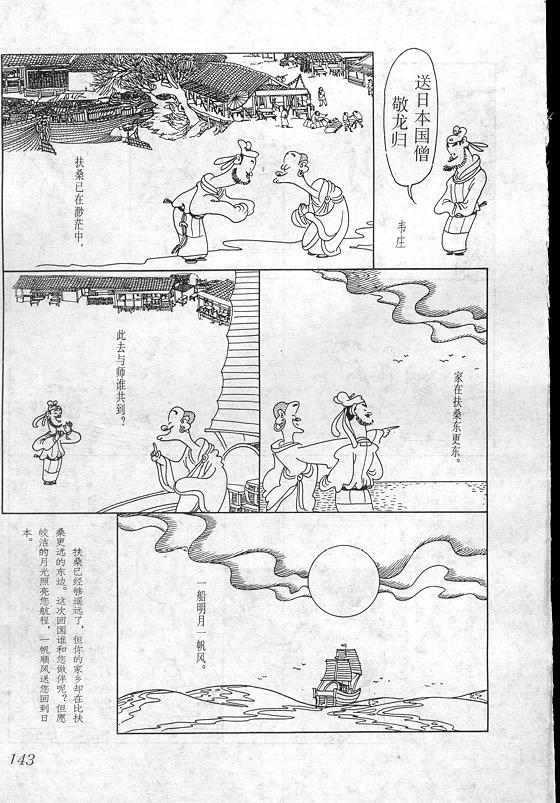 送日本国僧
敬龙归
韦庄
扶桑已在渺茫中，
家在扶桑东更东。
此去与师谁共到？
一船明月一帆风。
扶桑已经够遥远了，但你的家乡却在比扶
桑更远的东边。这次回国谁和您做伴呢？但愿
皎洁的月光照亮您航程，一帆顺风送您回到日
本。
143